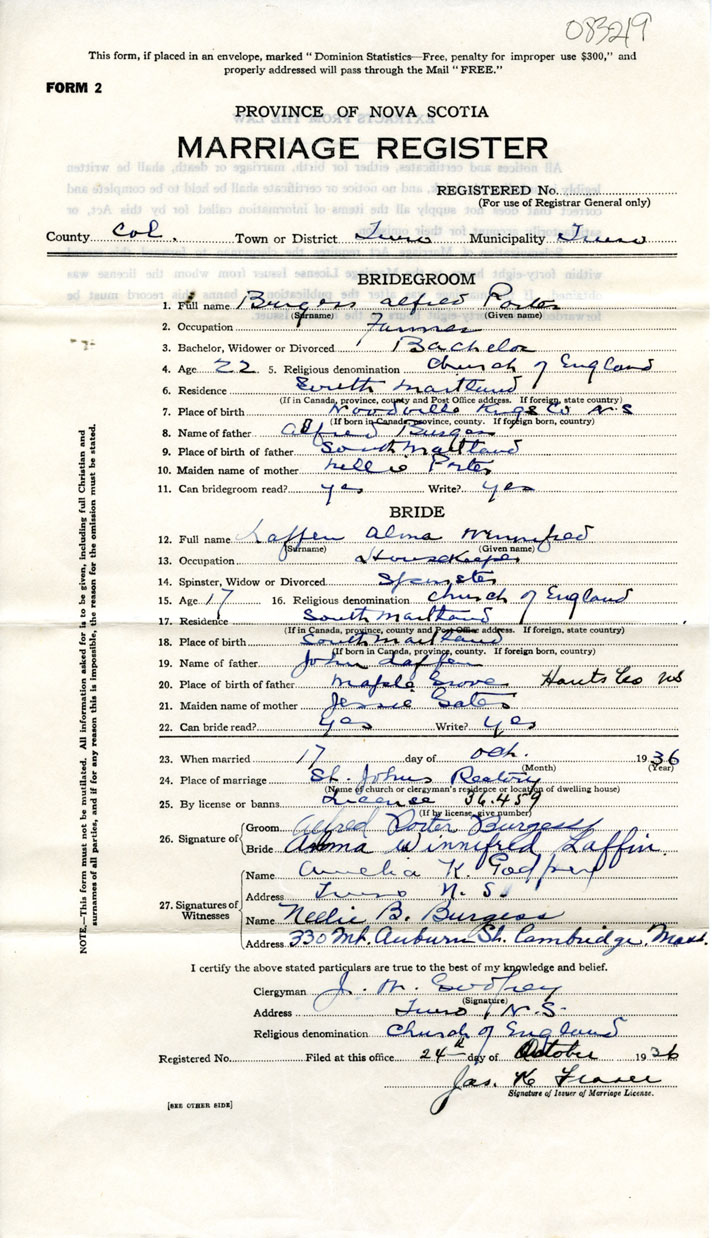 083219
This form, if placed in an envelope, marked "Dominion Statistics—Free, penalty for improper use $300," and
properly addressed will pass through the Mail "FREE."
FORM 2
PROVINCE OF NOVA SCOTIA
MARRIAGE REGISTER
REGISTERED No.
(For use of Registrar General only)
County Col. Town or District Truro Municipality Truro
BRIDEGROOM
1. Full name Burgess Alfred Porter
(Surname) (Given name)
2. Occupation Farmer
3. Bachelor, Widower or Divorced Bachelor
4. Age 22 5. Religious denomination Church of England
6. Residence South Maitland
(If in Canada, province, county and Post Office address. If foreign, state country)
7. Place of birth Woodville Kings Co N.S
(If born in Canada, province, county. If foreign born, country)
8. Name of father Alfred Burgess
9. Place of birth of father South Maitland
10. Maiden name of mother Nellie Porter
11. Can bridegroom read? yes Write? yes
BRIDE
12. Full name Laffen Alma Winnifred
(Surname) (Given name)
13. Occupation Housekeeper
14. Spinster, Widow or Divorced Spinster
15. Age 17 16. Religious denomination Church of England
17. Residence South Maitland
(If in Canada, province, county and Post Office address. If foreign, state country)
18. Place of birth South Maitland
(If born in Canada, province, county. If foreign born, country)
19. Name of father John Laffen
20. Place of birth of father Maple Grove Hants Co NS
21. Maiden name of mother Jessie Gates
22. Can bride read? yes Write? yes
23. When married 17 day of Oct. 1936
(Month) (Year)
24. Place of marriage St. Johns Rectory
(Name of church or clergyman's residence or location of dwelling house)
25. By license or banns License 36.459
(If by license, give number)
26. Signature of Groom Alfred Porter Burgess
Bride Alma Winnifred Laffin
27. Signatures of Witnesses
Name Amelia K. Godfrey
Address Truro N. S.
Name Nellie B. Burgess
Address 330 Mt. Auburn St. Cambridge, Mass.
I certify the above stated particulars are true to the best of my knowledge and belief.
Clergyman J. M. Godfrey
(Signature)
Address Truro, N.S.
Religious denomination Church of England
Registered No. Filed at this office 24th day of October 1936
Jas. K Fraser
Signature of Issuer of Marriage License.
[SEE OTHER SIDE]
NOTE.—This form must not be mutilated. All information asked for is to be given, including full Christian and
surnames of all parties, and if for any reason this is impossible, the reason for the omission must be stated.